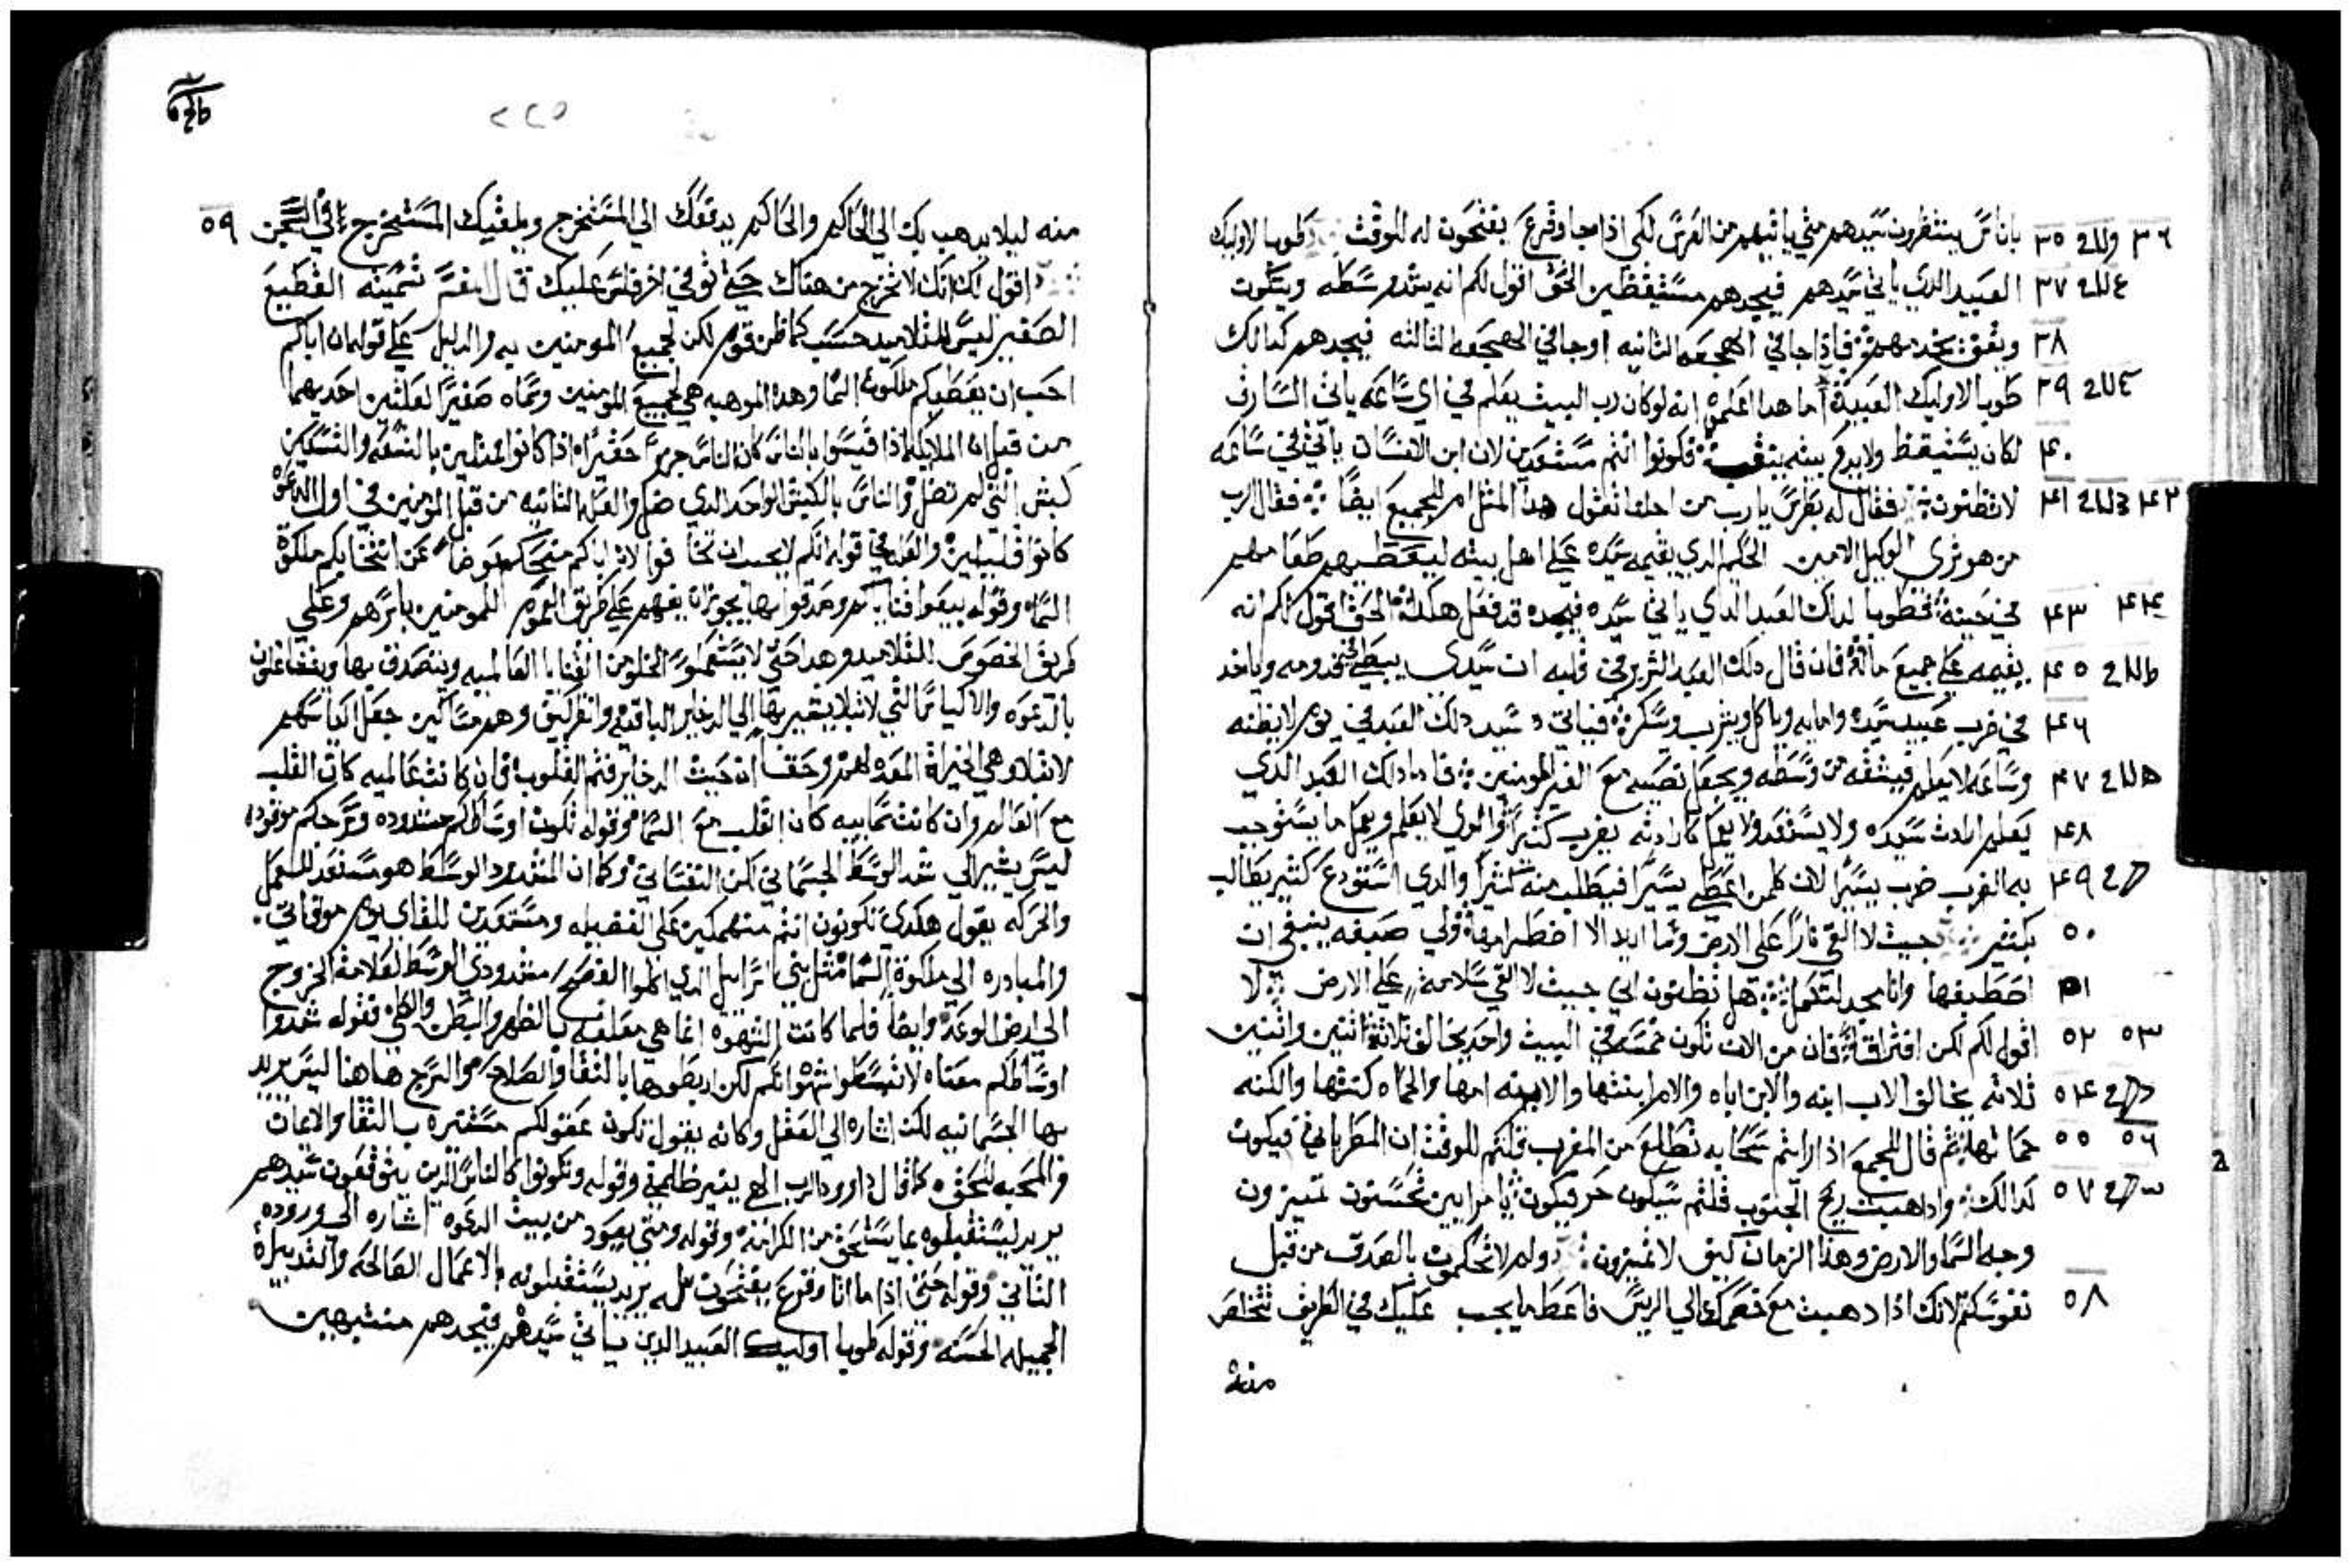 باناس ينتظرون سيدهم متي ياتيهم من العرس لكي اذا ما جا وقرع يفتحون له للوقت طوبا لاوليك
العبيد الذي ياتي سيدهم فيجدهم مستيقظين الحق اقول لكم انه يشد وسطه ويتكون
ويقف يخدمهم فاذا جا في الهجعه الثانيه او جا في الهجعه الثالثه فيجدهم كدالك
طوبا لاوليك العبيد اما هدا اعلموه انه لو كان رب البيت يعلم في اي ساعه ياتي السارق
لكان يستيقظ ولا يدع بيته ينقب فكونوا انتم مستعدين لان ابن الانسان ياتي في ساعه
لا تظنون فقال له بطرس يا رب من اجلنا تقول هدا المثل ام للجميع ايضا فقال الرب
من هو تري الوكيل الامين الحكيم الدي يقيمه سيده علي اهل بيته ليعطيهم طعامهم
في حينه فطوبا لداك العبد الدي ياتي سيده فيجده قد فعل هكدا الحق اقول لكم انه
يقيمه علي جميع ماله فان قال دلك العبد الشرير في قلبه ان سيدي يبطي قدومه وياخد
في ضرب عبيد سيده وامايه وياكل ويشرب ويسكر فياتي سيد دلك العبد في يوم لا يظنه
وساعه لا يعلم فيشقه من وسطه ويجعل نصيبه مع الغير المومنين فاما دلك العبد الدي
يعلم ارادت سيده ولا يستعد ولا يعمل كارادته يضرب كثيرا والدي لا يعلم ويعمل ما يستوجب
به الضرب ضرب يسيرا لان كلمن اعطي يسيرا فيطلب منه كثيرا والدي استودع كثير يطالب
بكثير جيت لالقي نارا علي الارض وما اريد الا اضطرامها ولي صبغه ينبغي ان
اصطبغها وانا مجد لتكمل هل تظنون اني جيت لالقي سلامة علي الارض لا
اقول لكم لكن افتراقا فان من الان تكون خمسه في البيت واحد يخالف ثلاثة اثنين واثنين
ثلاثه يخالف الاب ابنه والابن اباه والام ابنتها والابنه امها والحماه كنتها والكنه
حماتها ثم قال للجمع اذا رايتم سحابه تطلع من المغرب قلتم للوقت ان المطر ياتي فيكون
كدالك واداهبت ريح الجنوب قلتم سيكون حر فيكون يا مرايين تحسنون تميزون
وجه السما والارض وهدا الزمان كيف لا تميزون ولم لا تحكمون بالصدق من قبل
نفوسكم لانك ادا دهبت مع خصمك الي الريس فاعطه ما يجب عليك في الطريق تتخلص
منه
منه ليلا يدهب بك الي الحاكم والحاكم يدفعك الي المستخرج ويلقيك المستخرج في السجن
اقول لك انك لا تخرج من هناك حتي توفي اخر فلس عليك قال المفسر تسميته القطيع
الصغير ليس للتلاميد حسب كما ظن قوم لكن لجميع المومنين به والدليل علي قوله ان اباكم
احب ان يعطيكم ملكوت السما وهده الموهبه هي لجميع المومنين وسماه صغيرا لعلتين احديهما
من قبل ان الملايكه اذا قيسوا بالناس كان الناس جزوا حقيرا اذا كانوا ممثلين بالتسعه والتسعين
كبش التي لم تضل والناس بالكبش الواحد الدي ضل والعله الثانيه من قبل المومنين في اول الدعوه
كانوا قليلين والعله في قوله انكم لا يجب ان تخافوا لان اباكم منحكم عوضا عن انتخابكم ملكوة
السما وقوله بيعوا قناياكم وصدقوا بها يجوز ان يفهم علي طريق العموم للمومنين باسرهم وعلي
طريق الخصوص للتلاميد وهدا حتي لا يستعملوا الخلو من القنايا العالميه ويتصدق بها
بالدعوه والاكياس التي لا تبلا يشير بها الي الدخاير الباقيه
لا تبلا وهي الخيراة المعده لهم وحقا ان حيث الدخاير فثم القلوب فان كانت عالميه كان القلب
مع العالم وان كانت سماييه كان القلب مع السما وقوله تكون اوساطكم مشدوده وسرجكم موقوده
ليس يشير الي شد الوسط الجسماني لكن النفساني وكما ان المشدود الوسط هو مستعد للعمل
والحركه يقول هكدي تكونون انتم منهمكين علي الفضيله ومستعدين للقاي يوم موافاتي
والمبادره الي ملكوة السما مثل بني اسراييل الدي اكلوا الفصح مشدودي الوسط لعلامة الخروج
الي ارض الوعد وايضا فلما كانت الشهوه انما هي معلقه بالظهر والبطن والكلي فقوله شدوا
اوساطكم معناه لا تبسطوا شهواتكم لكن اربطوها بالنقا والصلاح والسرج هاهنا ليس يريد
بها الجسمانيه لكن اشاره الي العقل وكانه يقول تكون عقولكم مستنيره بالنقا والايمان
والمحبه للحق كما قال داوود الرب الهي ينير ظلمتي وقوله وتكونوا كالناس الدين يتوقعون سيدهم
يريد ليستقبلوه بما يستحق من الكرامة وقوله ومتي يعود من بيت الدعوه اشاره الي وروده
الثاني وقوله حتي اذا ما اتا وقرع يفتحون له يريد يستقبلونه بالاعمال الصالحه والتدبيراة
الجميله الحسنه وقوله طوبا اوليك العبيد الدين ياتي سيدهم فيجدهم منتبهين